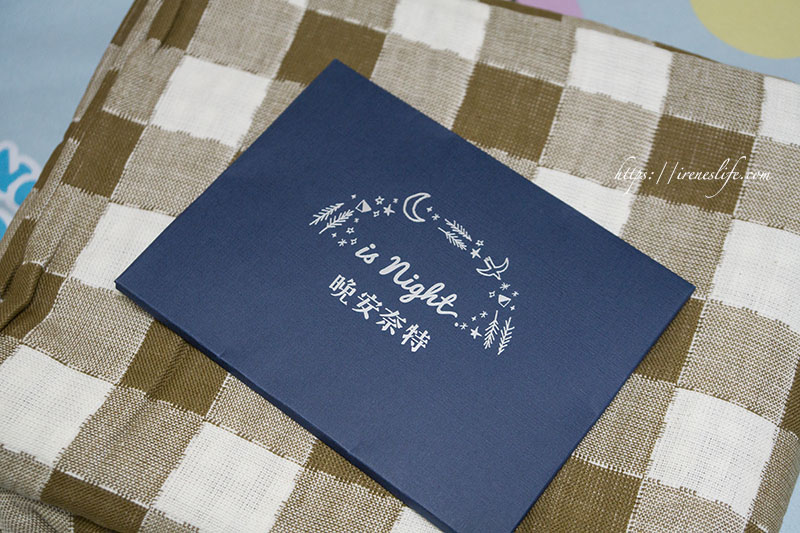 https://ireneslife.com
is Night
晚安奈特